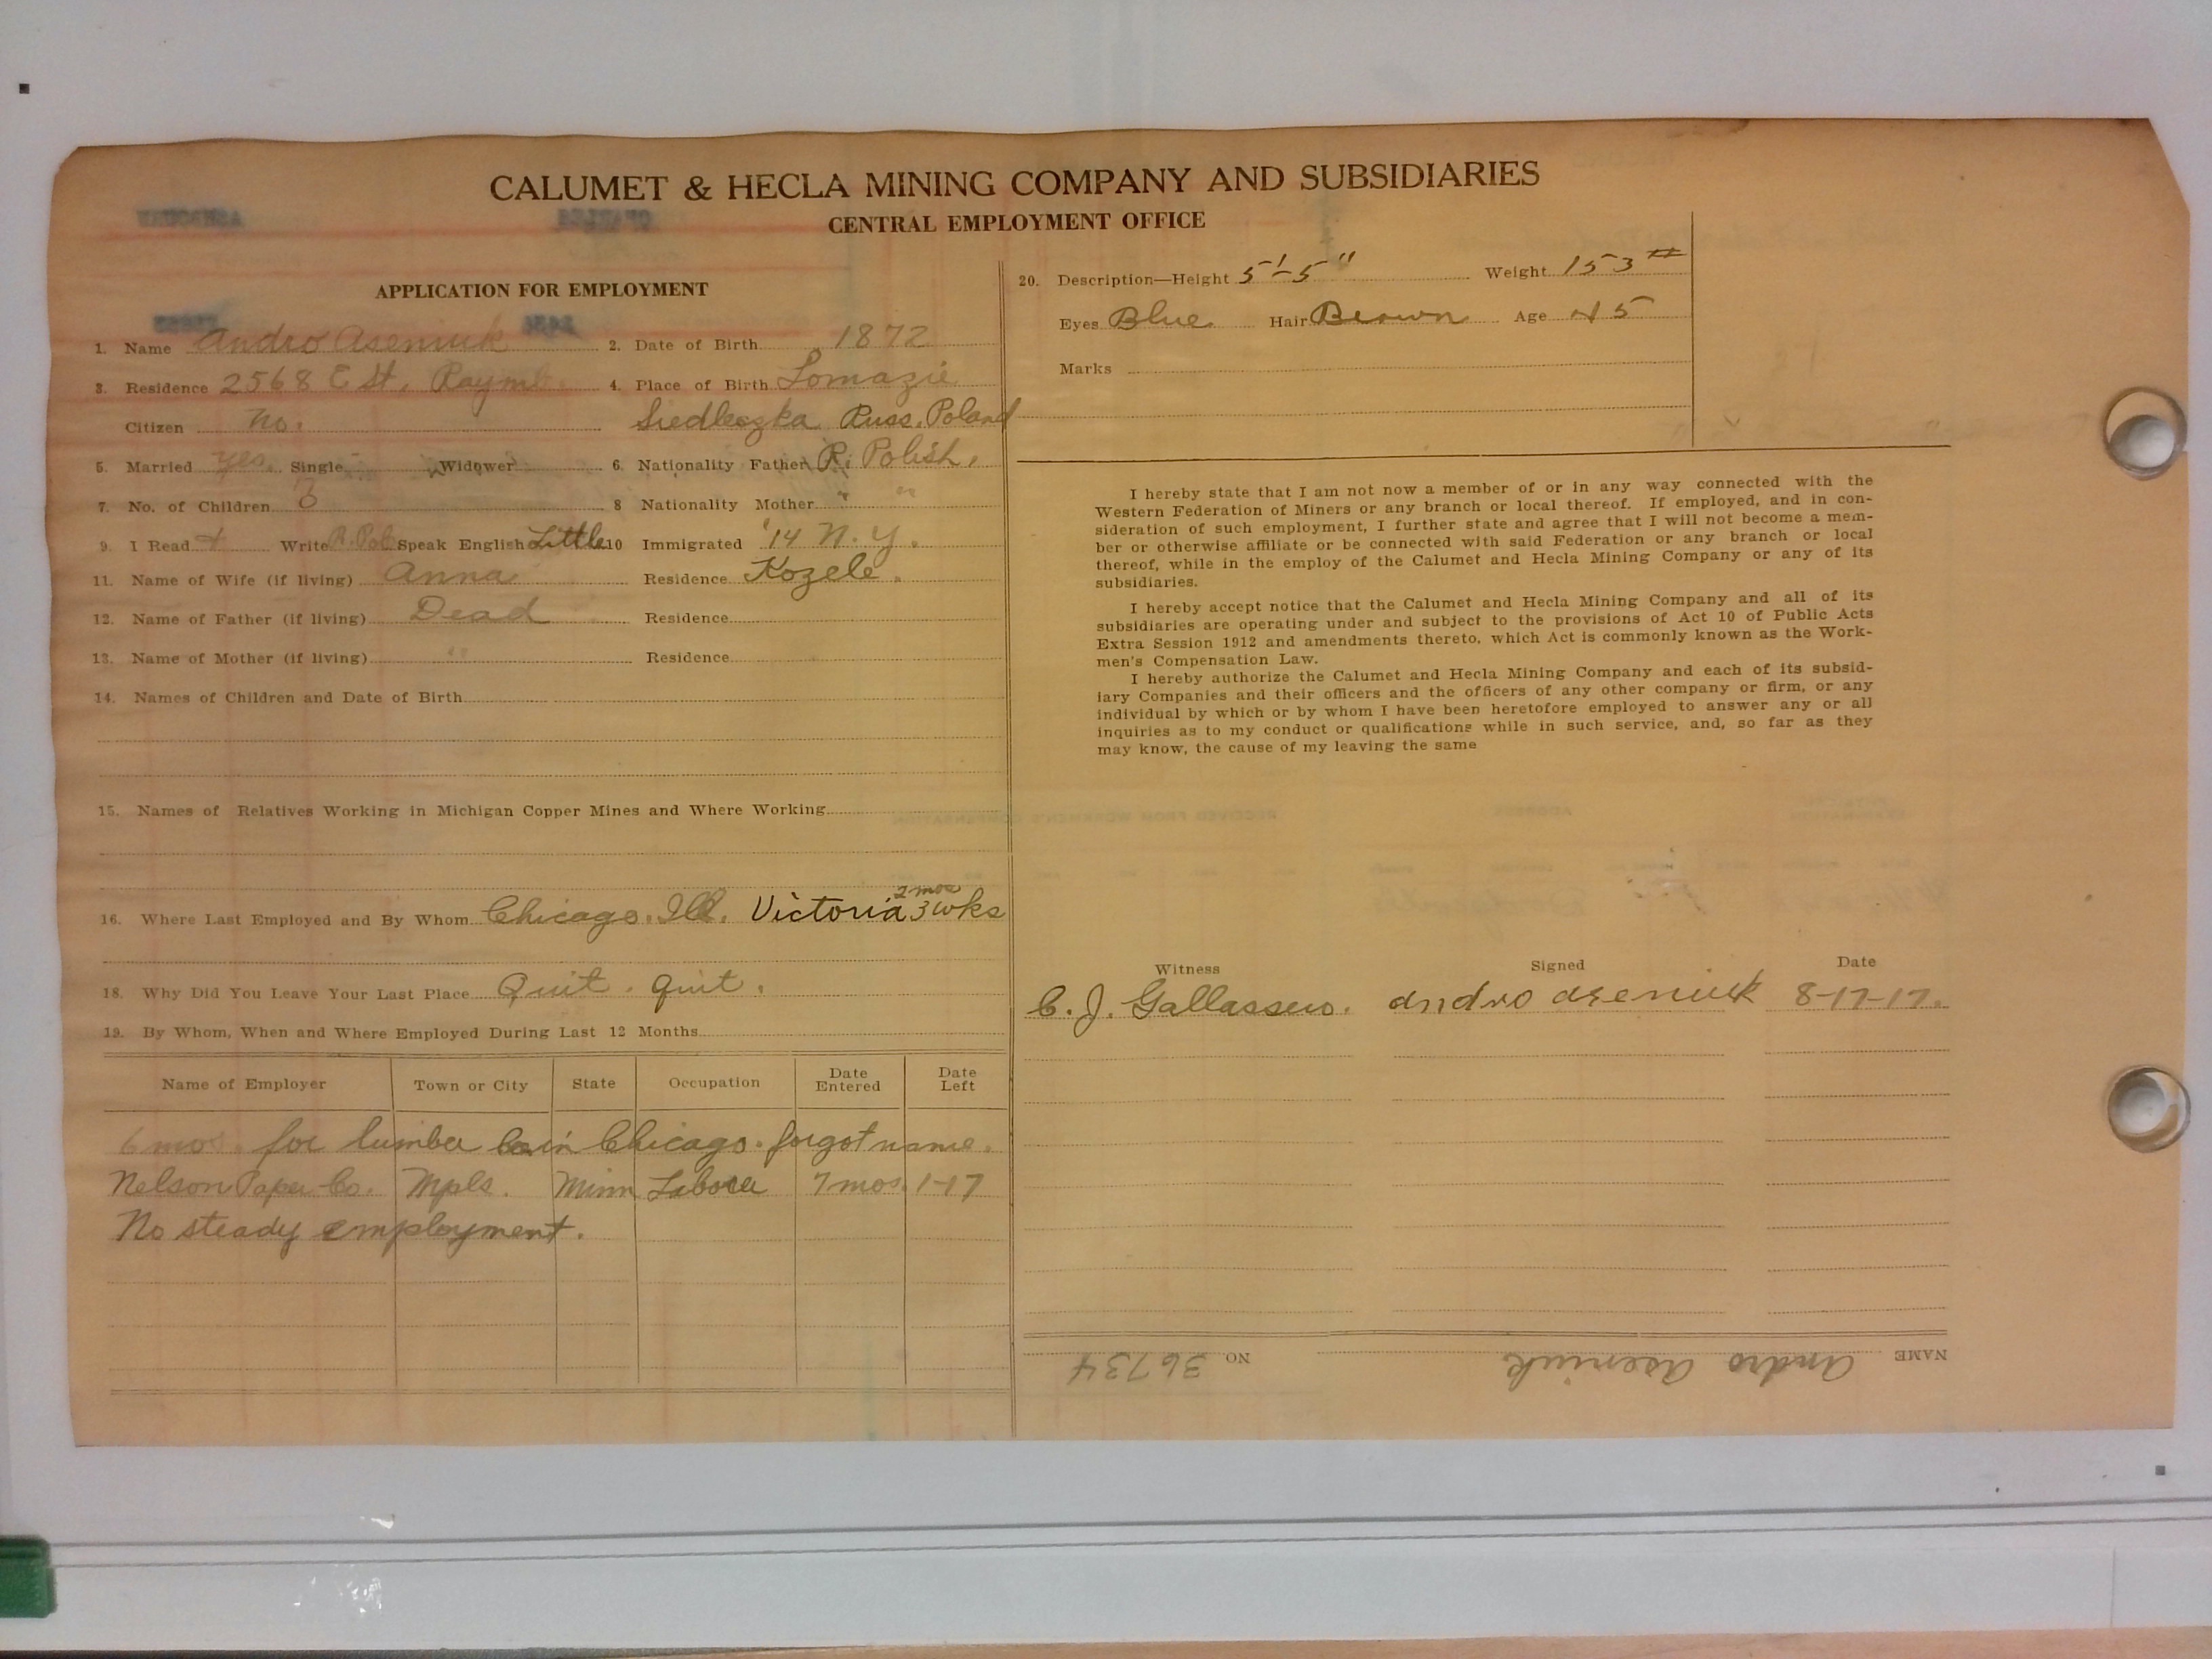 CALUMET & HECLA MINING COMPANY AND SUBSIDIARIES
CENTRAL EMPLOYMENT OFFICE
APPLICATION FOR EMPLOYMENT
1. Name Andro Aseniuk 2. Date of Birth 1872
3. Residence 2568 E St, Raymb. 4. Place of Birth Lomazie
Citizen no. Siedleszka Russ. Poland
5. Married yes. Single Widower 6. Nationality Father R. Polish,
7. No. of Children 3 8 Nationality Mother " "
9. I Read + Write R. Pol Speak English Little 10 Immigrated '14 N.Y.
11. Name of Wife (if living) Anna Residence Kozele.
12. Name of Father (if living) Dead Residence
13. Name of Mother (if living) " Residence
14. Names of Children and Date of Birth
15. Names of Relatives Working in Michigan Copper Mines and Where Working
2 mos
16. Where Last Employed and By Whom Chicago. Ill. Victoria 3 wks
18. Why Did You Leave Your Last Place Quit. quit.
19. By Whom, When and Where Employed During Last 12 Months
Name of Employer Town or City State Occupation Date Entered Date Left
6 mos. for lumber Co in Chicago. forgot name.
Nelson Paper Co. Mpls. Minn Laborer 7 mos. 1-17
No steady employment.
20. Description—Height 5'-5" Weight 153 #
Eyes Blue Hair Brown Age 45
Marks
I hereby state that I am not now a member of or in any way connected with the
Western Federation of Miners or any branch or local thereof. If employed, and in con-
sideration of such employment, I further state and agree that I will not become a mem-
ber or otherwise affiliate or be connected with said Federation or any branch or local
thereof, while in the employ of the Calumet and Hecla Mining Company or any of its
subsidiaries.
I hereby accept notice that the Calumet and Hecla Mining Company and all of its
subsidiaries are operating under and subject to the provisions of Act 10 of Public Acts
Extra Session 1912 and amendments thereto, which Act is commonly known as the Work-
men's Compensation Law.
I hereby authorize the Calumet and Hecla Mining Company and each of its subsid-
iary Companies and their officers and the officers of any other company or firm, or any
individual by which or by whom I have been heretofore employed to answer any or all
inquiries as to my conduct or qualifications while in such service, and, so far as they
may know, the cause of my leaving the same
Witness Signed Date
C. J. Gallassero. andro aseniuk 8-17-17.
NAME Andro Aseniuk NO 36734